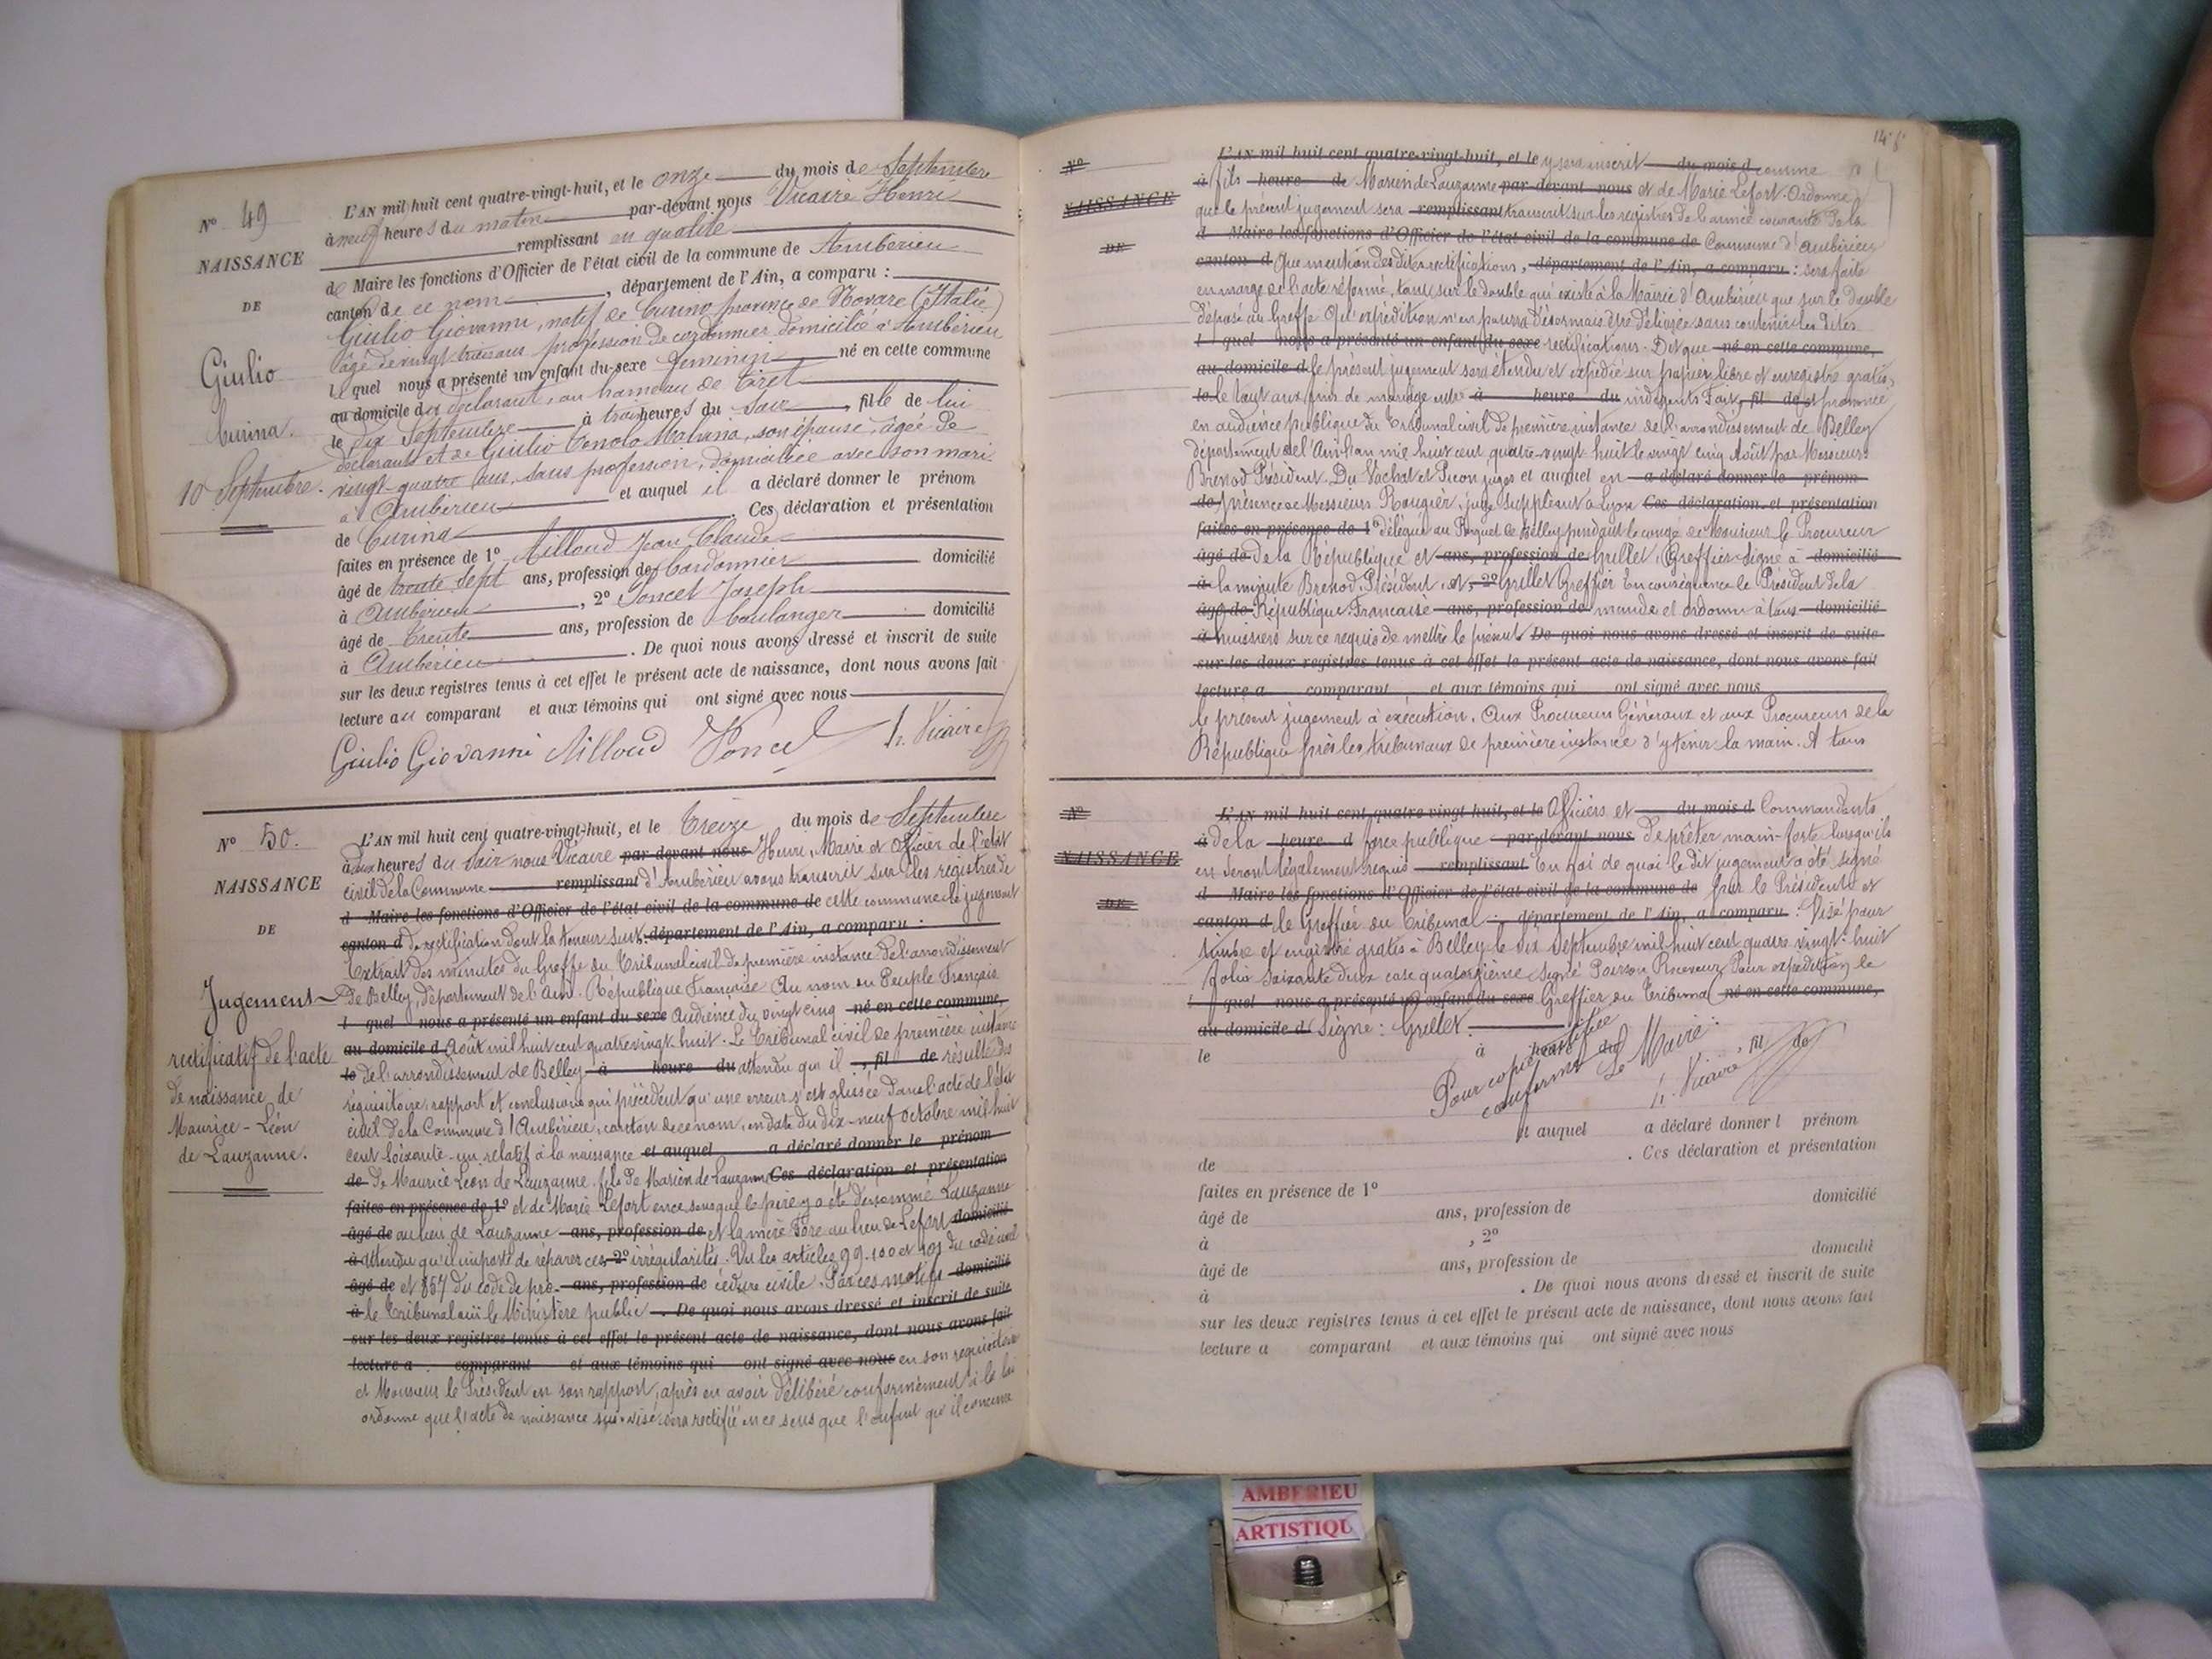 N° 49
NAISSANCE
DE
Giulio
Curina.
10 Septembre.
L'AN mil huit cent quatre-vingt-huit, et le onze du mois de Septembre
à neuf heures du matin par-devant nous Vicaire Henri
remplissant en qualité
de Maire les fonctions d'Officier de l'état civil de la commune de Ambérieu
canton de ce nom, département de l'Ain, a comparu :
Giulio Giovanni, natif de Curino province de Novare (Italie)
âgé de vingt trois ans profession de cordonnier domicilié à Ambérieu
lequel nous a présenté un enfant du sexe féminin né en cette commune
au domicile du déclarant, au hameau de Tiret
le dix Septembre à trois heures du soir, fille de lui
déclarant et de Giulio son épouse, âgée de
vingt-quatre ans, sans profession, domiciliée avec son mari
à Ambérieu et auquel il a déclaré donner le prénom
de Curina. Ces déclaration et présentation
faites en présence de 1° Milloud Jean Claude
âgé de trente sept ans, profession de Cordonnier domicilié
à Ambérieu, 2° Poncet Joseph
âgé de trente ans, profession de boulanger domicilié
à Ambérieu. De quoi nous avons dressé et inscrit de suite
sur les deux registres tenus à cet effet le présent acte de naissance, dont nous avons fait
lecture au comparant et aux témoins qui ont signé avec nous
Giulio Giovanni Milloud Poncet h. Vicaire
N° 50.
NAISSANCE
DE
Jugement
rectificatif de l'acte
de naissance de
Maurice-Léon
de Lauzanne.
L'AN mil huit cent quatre-vingt-huit, et le treize du mois de Septembre
à deux heures du soir nous Vicaire par-devant nous Henri, Maire et Officier de l'état
civil de la Commune remplissant d'Ambérieu avons transcrit sur les registres de
d Maire les fonctions d'Officier de l'état civil de la commune de cette commune le jugement
canton d de rectification dont la teneur suit. département de l'Ain, a comparu :
Extrait des minutes du Greffe du Tribunal civil de première instance de l'arrondissement
de Belley, département de l'Ain. République Française Au nom du Peuple Français
l quel nous a présenté un enfant du sexe Audience du vingt cinq né en cette commune,
au domicile d Août mil huit cent quatre vingt huit. Le Tribunal civil de première instance
le de l'arrondissement de Belley à heure du attendu qu'il , fil de résulte des
réquisitoire, rapport et conclusions qui précèdent qu'une erreur s'est glissée dans l'acte de l'état
civil de la Commune d'Ambérieu, canton de ce nom, en date du dix-neuf octobre mil huit
cent soixante-un relatif à la naissance et auquel a déclaré donner le prénom
de de Maurice Léon de Lauzanne. fils de Marien de Lauzanne Ces déclaration et présentation
faites en présence de 1° et de Marie Lefort en ce sens que le père y a été dénommé Lauzanne
âgé de au lieu de Lauzanne ans, profession de et la mère Fore au lieu de Lefort domicilié
à attendu qu'il importe de réparer ces 2° irrégularités. Vu les articles 99. 100 et 101 du code civil
âgé de et 857 du code de pro- ans, profession de cédure civile. Par ces motifs domicilié
à le Tribunal ouï le Ministère public . De quoi nous avons dressé et inscrit de suite
sur les deux registres tenus à cet effet le présent acte de naissance, dont nous avons fait
lecture a comparant et aux témoins qui ont signé avec nous en son réquisitoire
et Monsieur le Président en son rapport, après en avoir délibéré conformément à la loi
ordonne que l'acte de naissance sus-visé sera rectifié en ce sens que l'enfant qu'il concerne
N°
NAISSANCE
DE
L'AN mil huit cent quatre-vingt-huit, et le y sera inscrit du mois d comme
à fils heure de Marien de Lauzanne par-devant nous et de Marie Lefort. Ordonne
que le présent jugement sera remplissant transcrit sur les registres de l'année courante de la
d Maire les fonctions d'Officier de l'état civil de la commune de Commune d'Ambérieu
canton d Que mention desdites rectifications, département de l'Ain, a comparu : sera faite
en marge de l'acte réformé, tant sur le double qui existe à la Mairie d'Ambérieu que sur le double
déposé au Greffe. Qu'expédition n'en pourra désormais être délivrée sans contenir les dites
l quel nous a présenté un enfant du sexe rectifications. Dit que né en cette commune,
au domicile d le présent jugement sera étendu et expédié sur papier libre et enregistré gratis,
le le tout aux fins de mariage entre à heure du indigents Fait, fil de et prononcé
en audience publique du Tribunal civil de première instance de l'arrondissement de Belley
département de l'Ain l'an mil huit cent quatre-vingt huit le vingt cinq Août par Messieurs
Brenod Président. Du Vachat et Picon juges et auquel en a déclaré donner le prénom
de présence de Messieurs Rougier, juge suppléant à Lyon Ces déclaration et présentation
faites en présence de 1° délégué au Parquet de Belley pendant le congé de Monsieur le Procureur
âgé de de la République et ans, profession de Grillet, Greffier Signé à domicilié
à la minute Brenod Président, et, 2° Grillet Greffier En conséquence le Président de la
âgé de République Française ans, profession de mande et ordonne à tous domicilié
à huissiers sur ce requis de mettre le présent De quoi nous avons dressé et inscrit de suite
sur les deux registres tenus à cet effet le présent acte de naissance, dont nous avons fait
lecture a comparant et aux témoins qui ont signé avec nous
le présent jugement à exécution. Aux Procureurs Généraux et aux Procureurs de la
République près les tribunaux de première instance d'y tenir la main. A tous
N°
NAISSANCE
DE
L'AN mil huit cent quatre vingt huit, et le Officiers et du mois d Commandants
à de la heure d force publique par-devant nous de prêter main-forte lorsqu'ils
en seront légalement requis remplissant En foi de quoi le dit jugement a été signé
d Maire les fonctions d'Officier de l'état civil de la commune de par le Président et
canton d le Greffier du Tribunal , département de l'Ain, a comparu : Visé pour
timbre et enregistré gratis à Belley le dix Septembre mil huit cent quatre vingt-huit
folio soixante deux case quatorzième signé Poirson Receveur Pour expédition le
l quel nous a présenté un enfant du sexe Greffier du Tribunal né en cette commune,
au domicile d Signé : Grillet.
le à heure du , fil de
Pour copie certifiée
conforme Le Maire :
h. Vicaire
et auquel a déclaré donner l prénom
de . Ces déclaration et présentation
faites en présence de 1°
âgé de ans, profession de domicilié
à , 2°
âgé de ans, profession de domicilié
à . De quoi nous avons dressé et inscrit de suite
sur les deux registres tenus à cet effet le présent acte de naissance, dont nous avons fait
lecture a comparant et aux témoins qui ont signé avec nous
AMBERIEU
ARTISTIQU